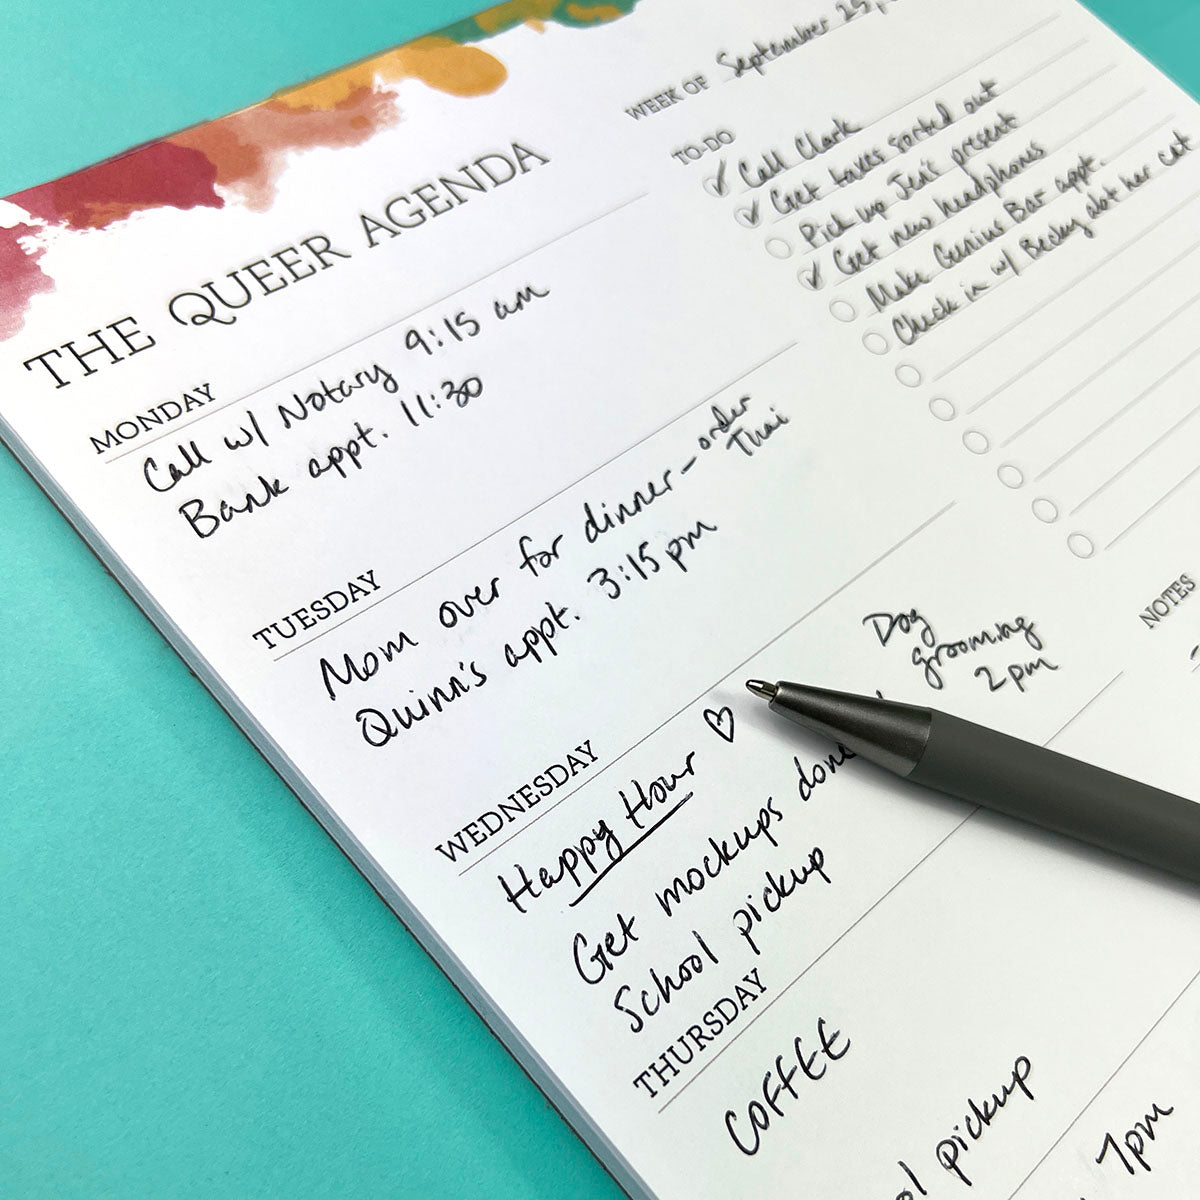 THE QUEER AGENDA
WEEK OF September 25,
TO-DO
Call Clark
Get taxes sorted out
Pick up Jen's present
Get new headphones
Make Genius Bar appt.
Check in w/ Becky abt her cat
MONDAY
Call w/ Notary 9:15 am
Bank appt. 11:30
TUESDAY
Mom over for dinner - order
Thai
Quinn's appt. 3:15 pm
WEDNESDAY
Happy Hour ♡
Get mockups done
School pickup
Dog
grooming
2pm
THURSDAY
COFFEE
pickup
7pm
NOTES